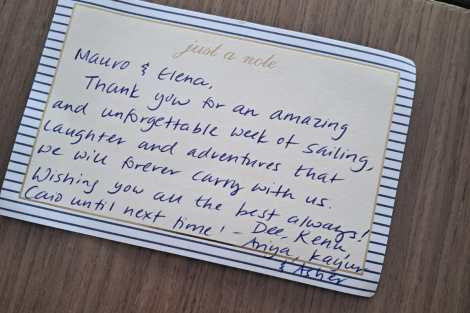 just a note
Mauro & Elena,
Thank you for an amazing
and unforgettable week of sailing,
laughter and adventures that
we will forever carry with us.
Wishing you all the best always!
Caio until next time! - Dee, Kenu,
Anya, Kayur
& Asher